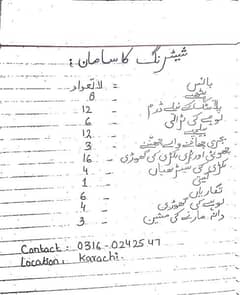 شیٹرنگ کا سامان :
بانس = لاتعداد
8
پلاسٹک کے نیلے ڈرم 12
لوہے کی ٹرالی 6
بیلچے 12
بجری چھاننے والے چھننے 3
چھوٹی اور بڑی لکڑی کی گھوڑی 16
لکڑی کی سیڑھیاں 4
گینتی 1
تغاریاں 6
لوہے کی گھوڑی 4
واٹر مارنے کی مشین 3
Contact : 0316-0242547
Location : Karachi.